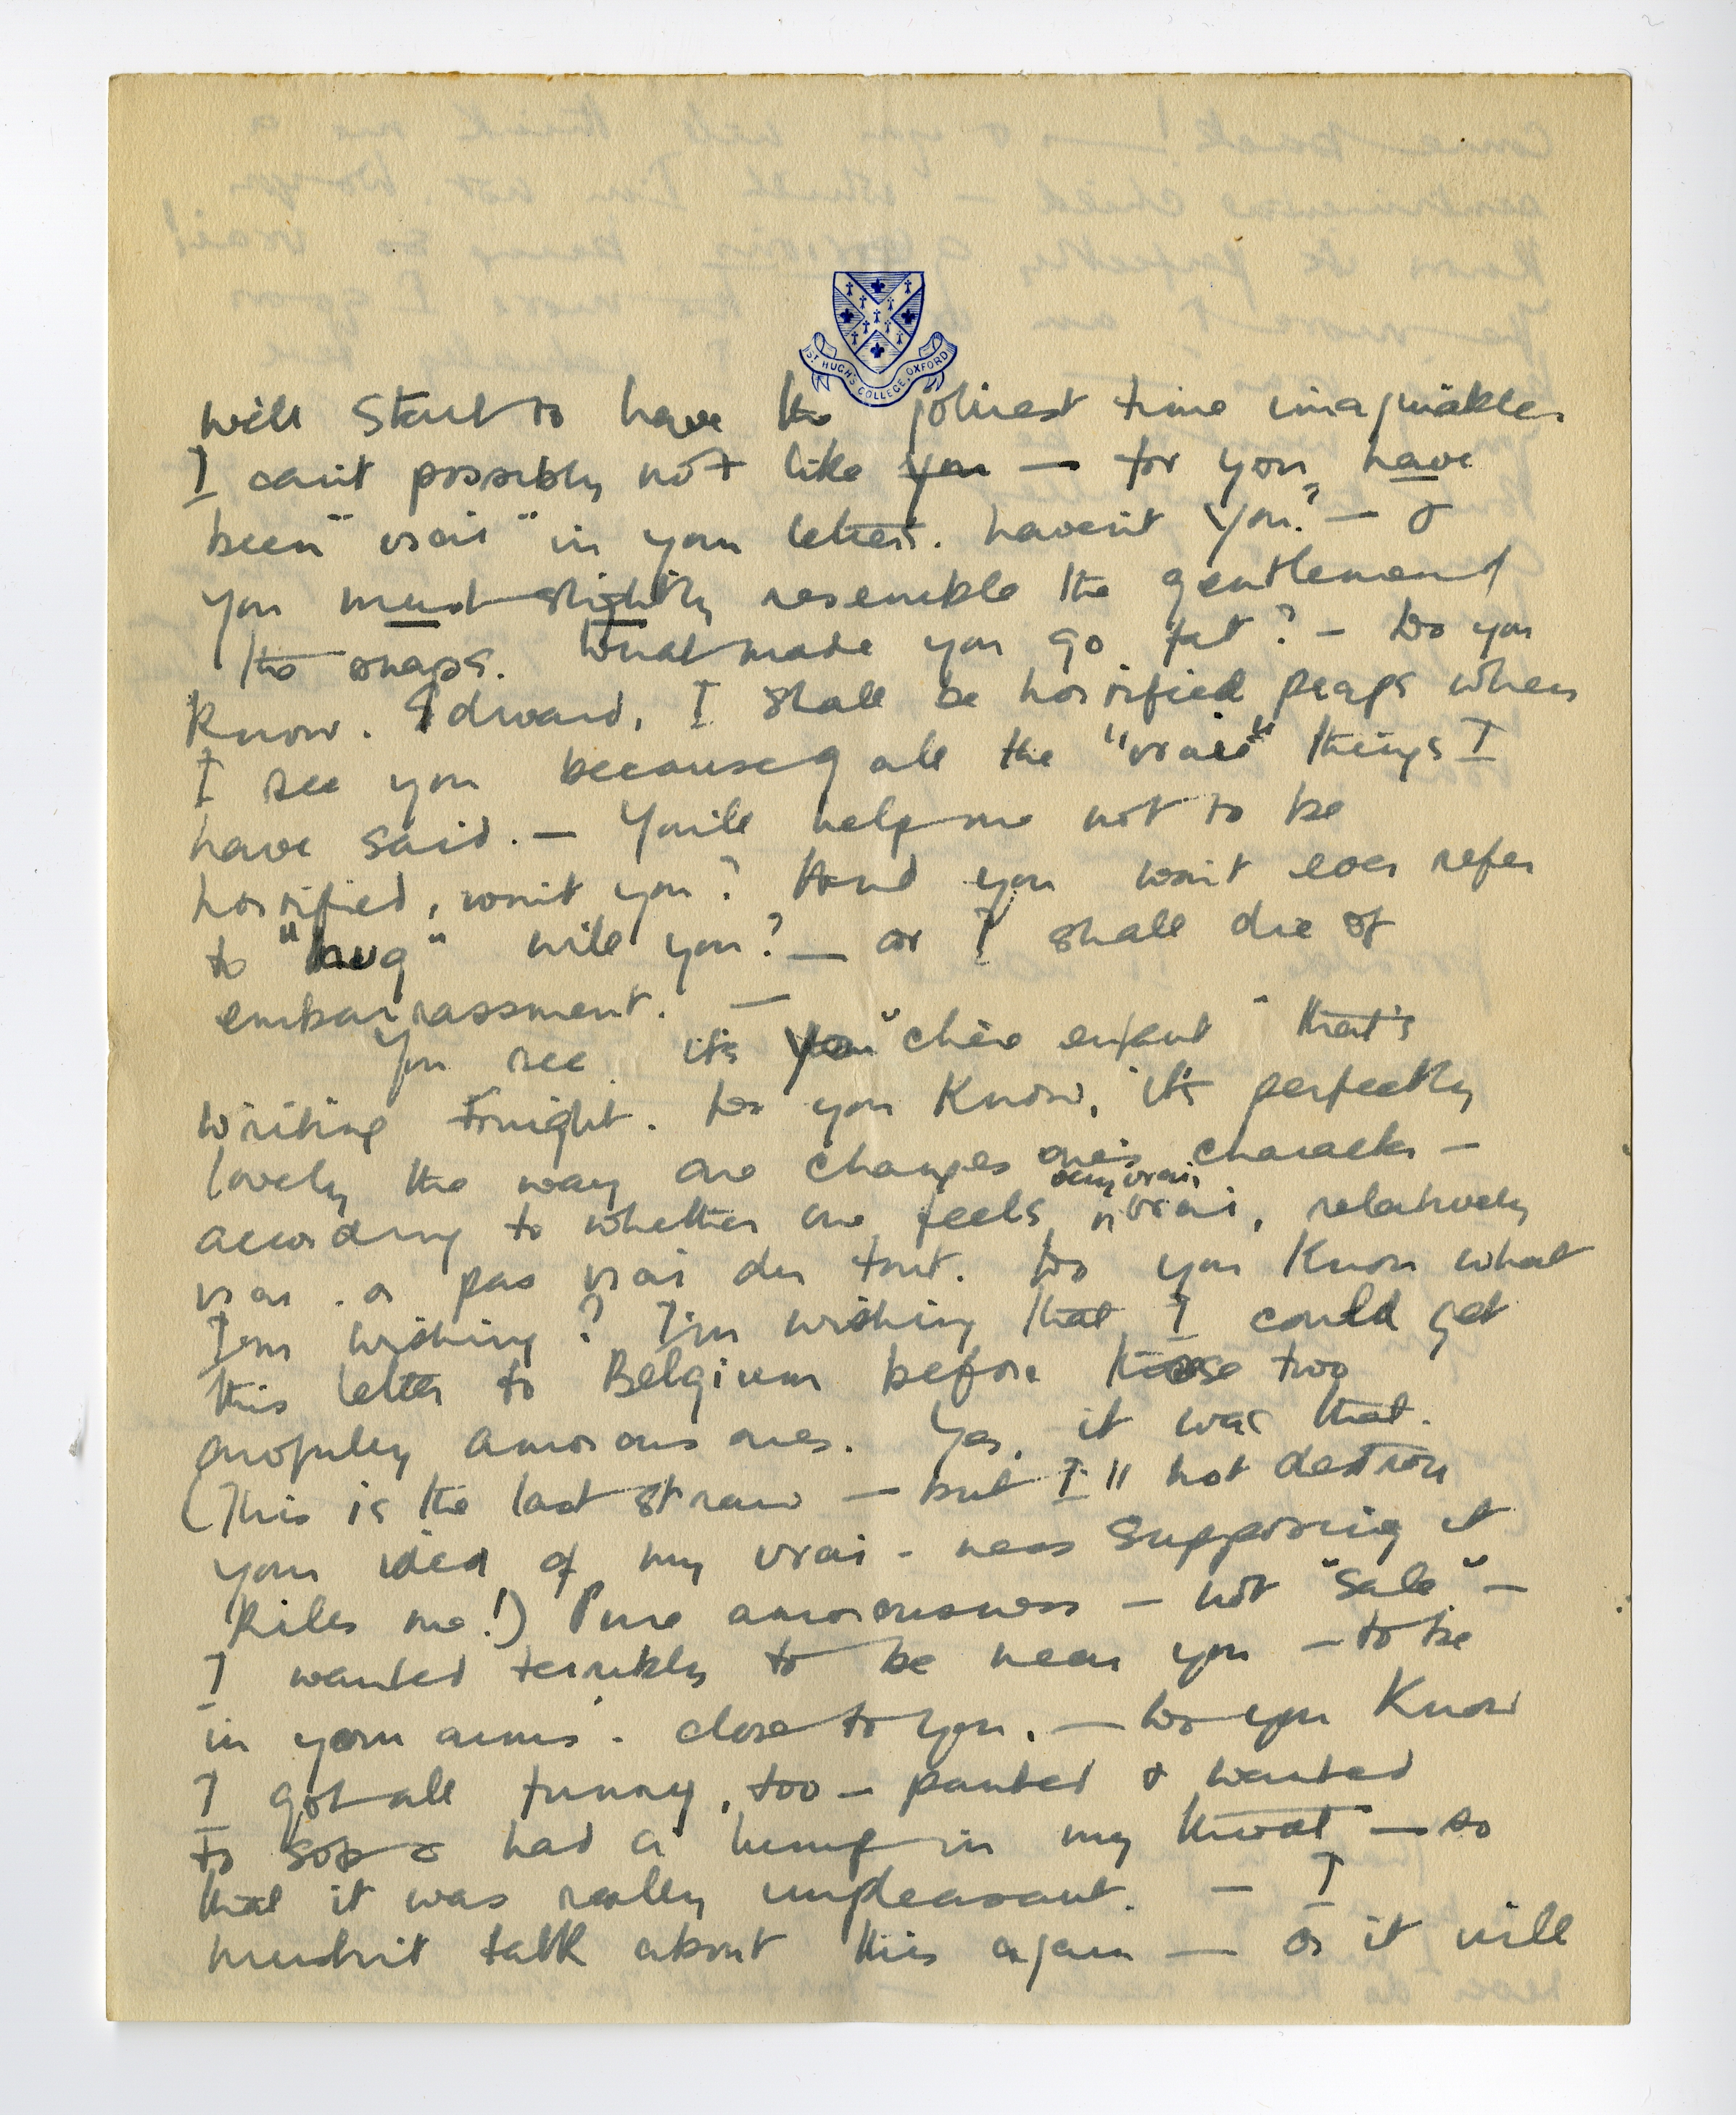 ST HUGH'S COLLEGE, OXFORD
will start to have the jolliest time imaginable.
I can't possibly not like you — for you have
been "vrai" in your letters. haven't you? — &
you must slightly resemble the gentleman of
the snaps. What made you go fat? — Do you
know, Edward, I shall be horrified praps when
I see you because of all the "vraie" things I
have said. — You'll help me not to be
horrified, won't you? And you won't ever refer
to "hug" will you? — or I shall die of
embarrassment. —
You see it's your "chère enfant" that's
writing tonight. Do you know, it's perfectly
lovely the way one changes one's character —
according to whether one feels very vrai, vrai, relatively
vrai. or pas vrai du tout. Do you know what
I'm wishing? I'm wishing that I could get
this letter to Belgium before those two
awfully amorous ones. Yes, it was that.
(This is the last straw — but I'll not destroy
your idea of my vrai-ness supposing it
kills me!) Pure amorousness — not "sale" —
I wanted terribly to be near you — to be
in your arms. close to you. — Do you know
I got all funny, too — panted & wanted
to sob & had a lump in my throat — so
that it was really unpleasant. — I
mustn't talk about this again — or it will